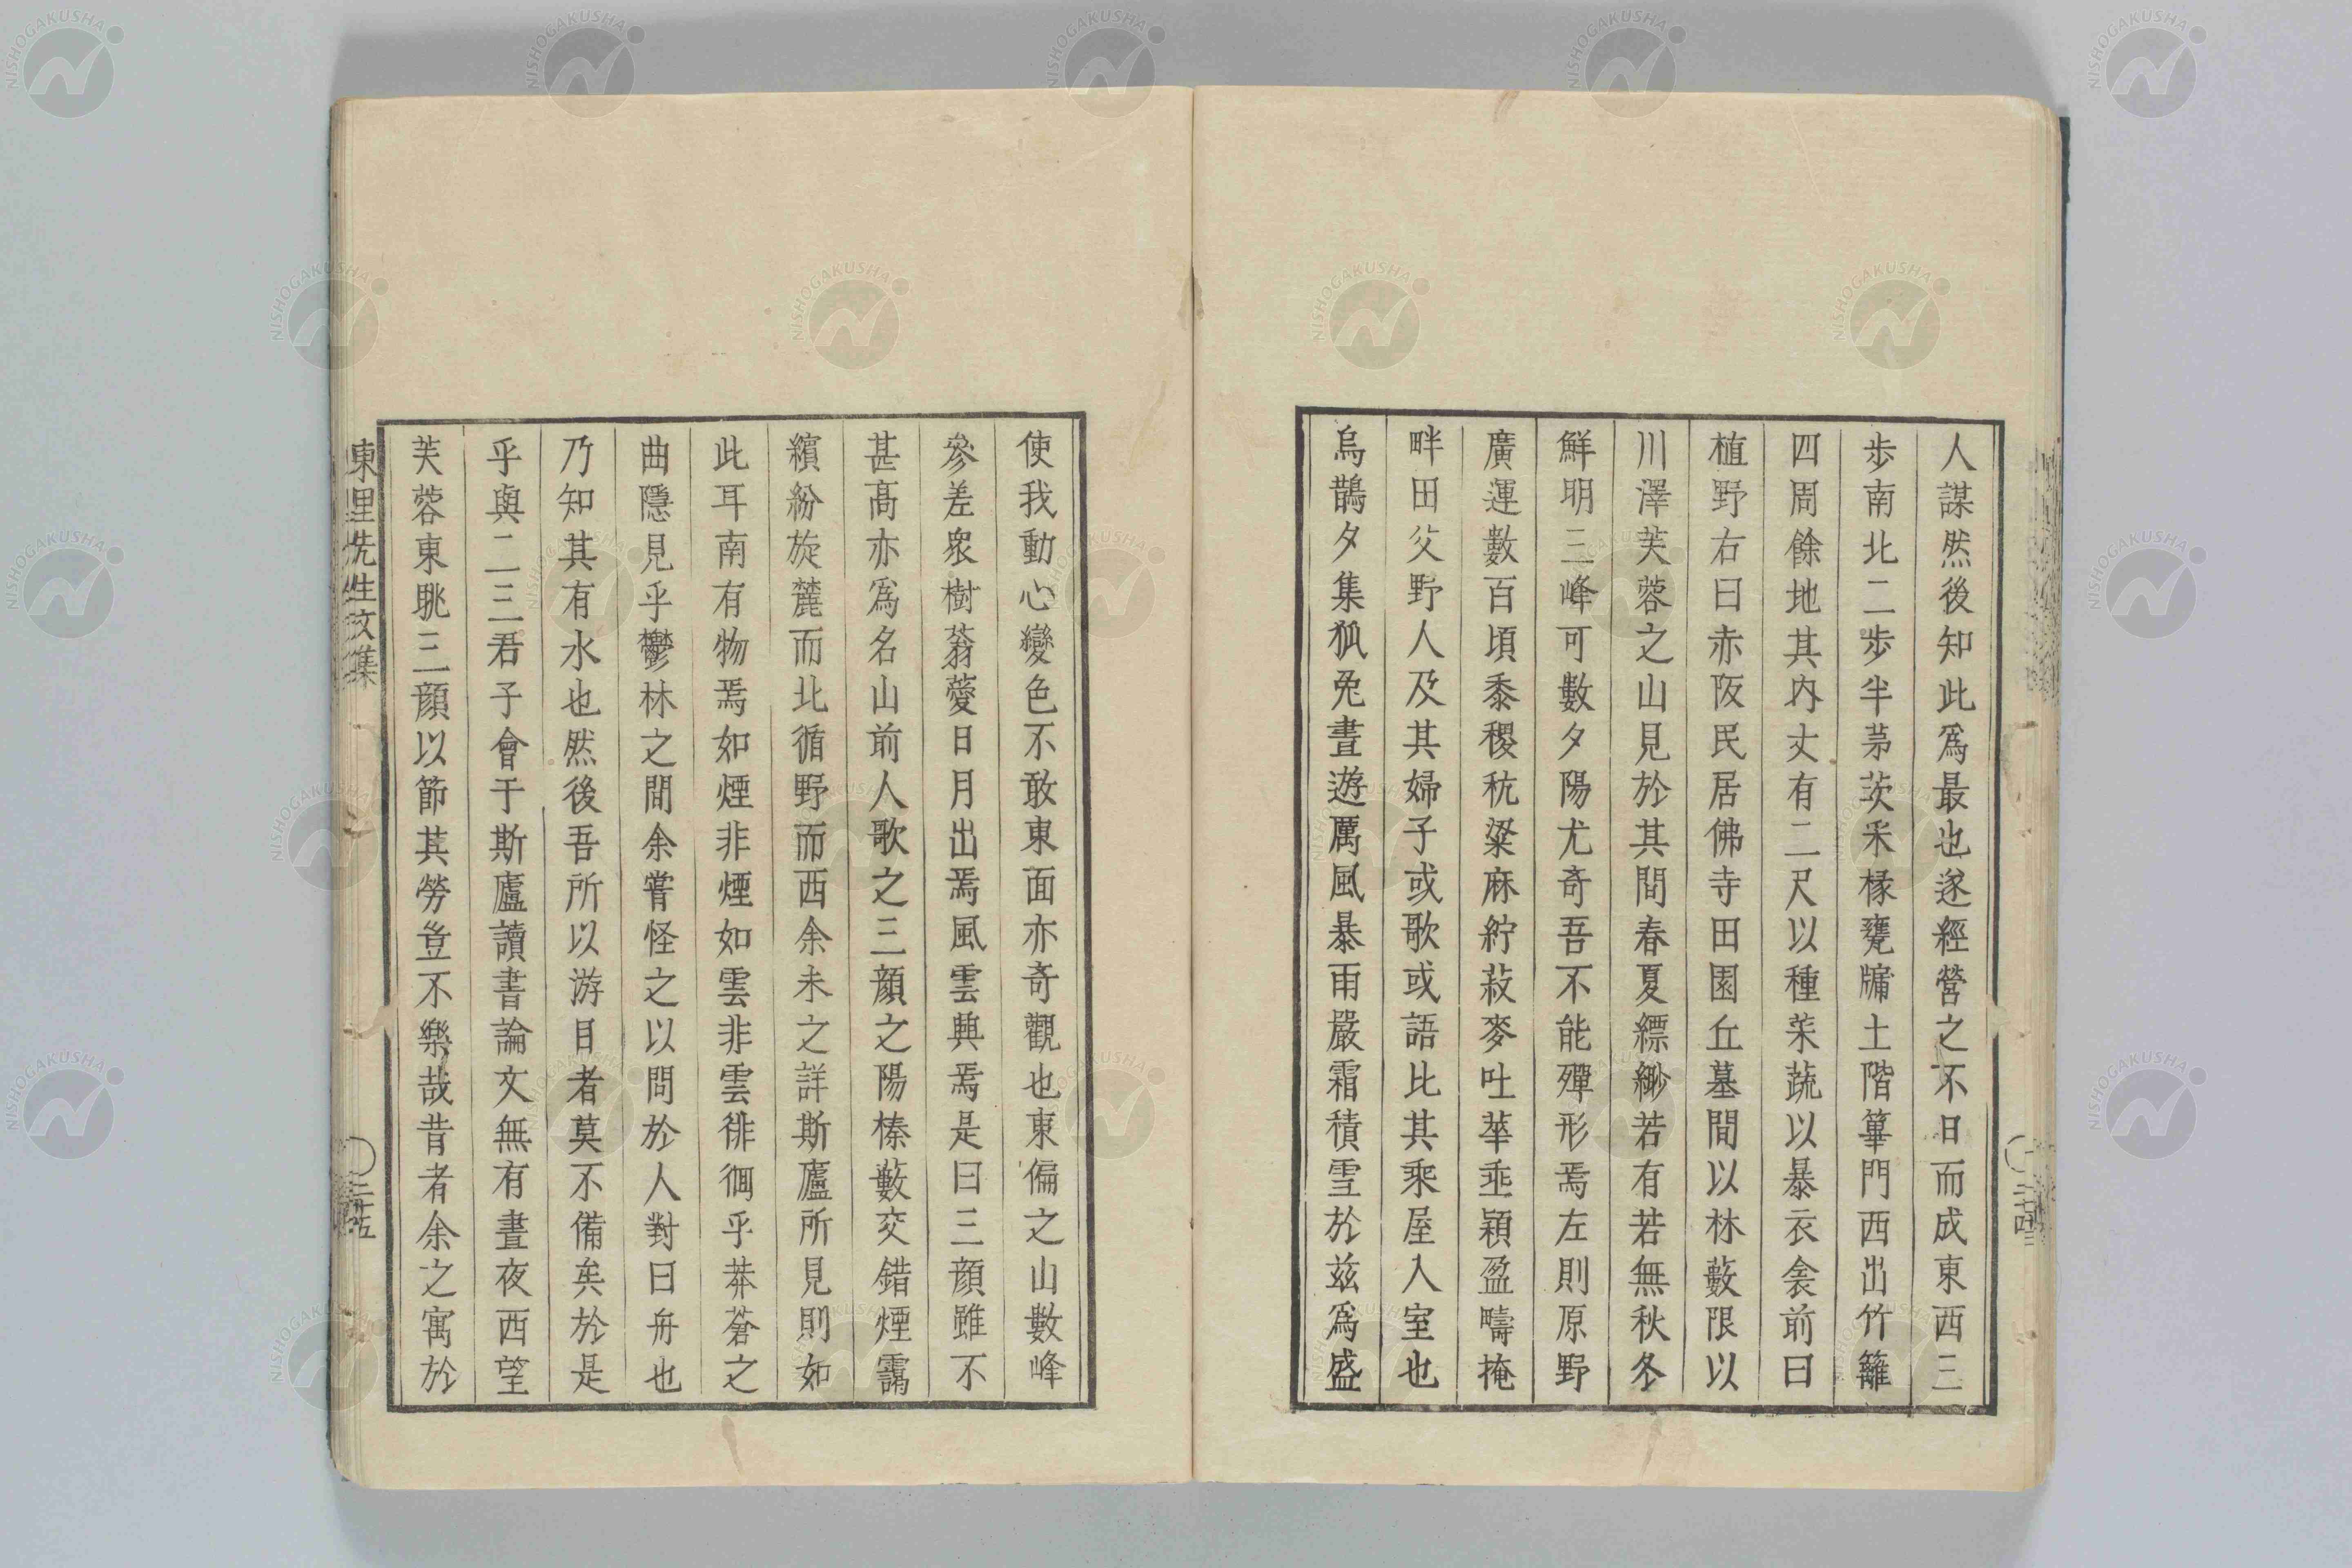 人謀然後知此爲最也遂經營之不日而成東西三
步南北二步半茅茨釆椽甕牖土階篳門西出竹籬
四周餘地其内丈有二尺以種茱蔬以暴衣衾前曰
植野右曰赤阪民居佛寺田園丘墓間以林藪限以
川澤芙蓉之山見於其間春夏縹緲若有若無秋冬
鮮明三峰可數夕陽尤奇吾不能殫形焉左則原野
廣運數百頃黍稷秔粱麻紵菽麥吐華垂穎盈疇掩
畔田父野人及其婦子或歌或語比其乘屋入室也
烏鵲夕集狐兎晝遊厲風暴雨嚴霜積雪於兹爲盛
使我動心變色不敢東面亦奇觀也東偏之山數峰
參差衆樹蓊薆日月出焉風雲興焉是曰三顔雖不
甚高亦爲名山前人歌之三顔之陽榛藪交錯煙靄
繽紛旋麓而北循野而西余未之詳斯廬所見則如
此耳南有物焉如煙非煙如雲非雲徘徊乎莽蒼之
曲隱見乎鬱林之間余嘗怪之以問於人對曰舟也
乃知其有水也然後吾所以游目者莫不備矣於是
乎與二三君子會于斯廬讀書論文無有晝夜西望
芙蓉東眺三顔以節其勞豈不樂哉昔者余之寓於
東里先生文集
二十五
NISHOGAKUSHA